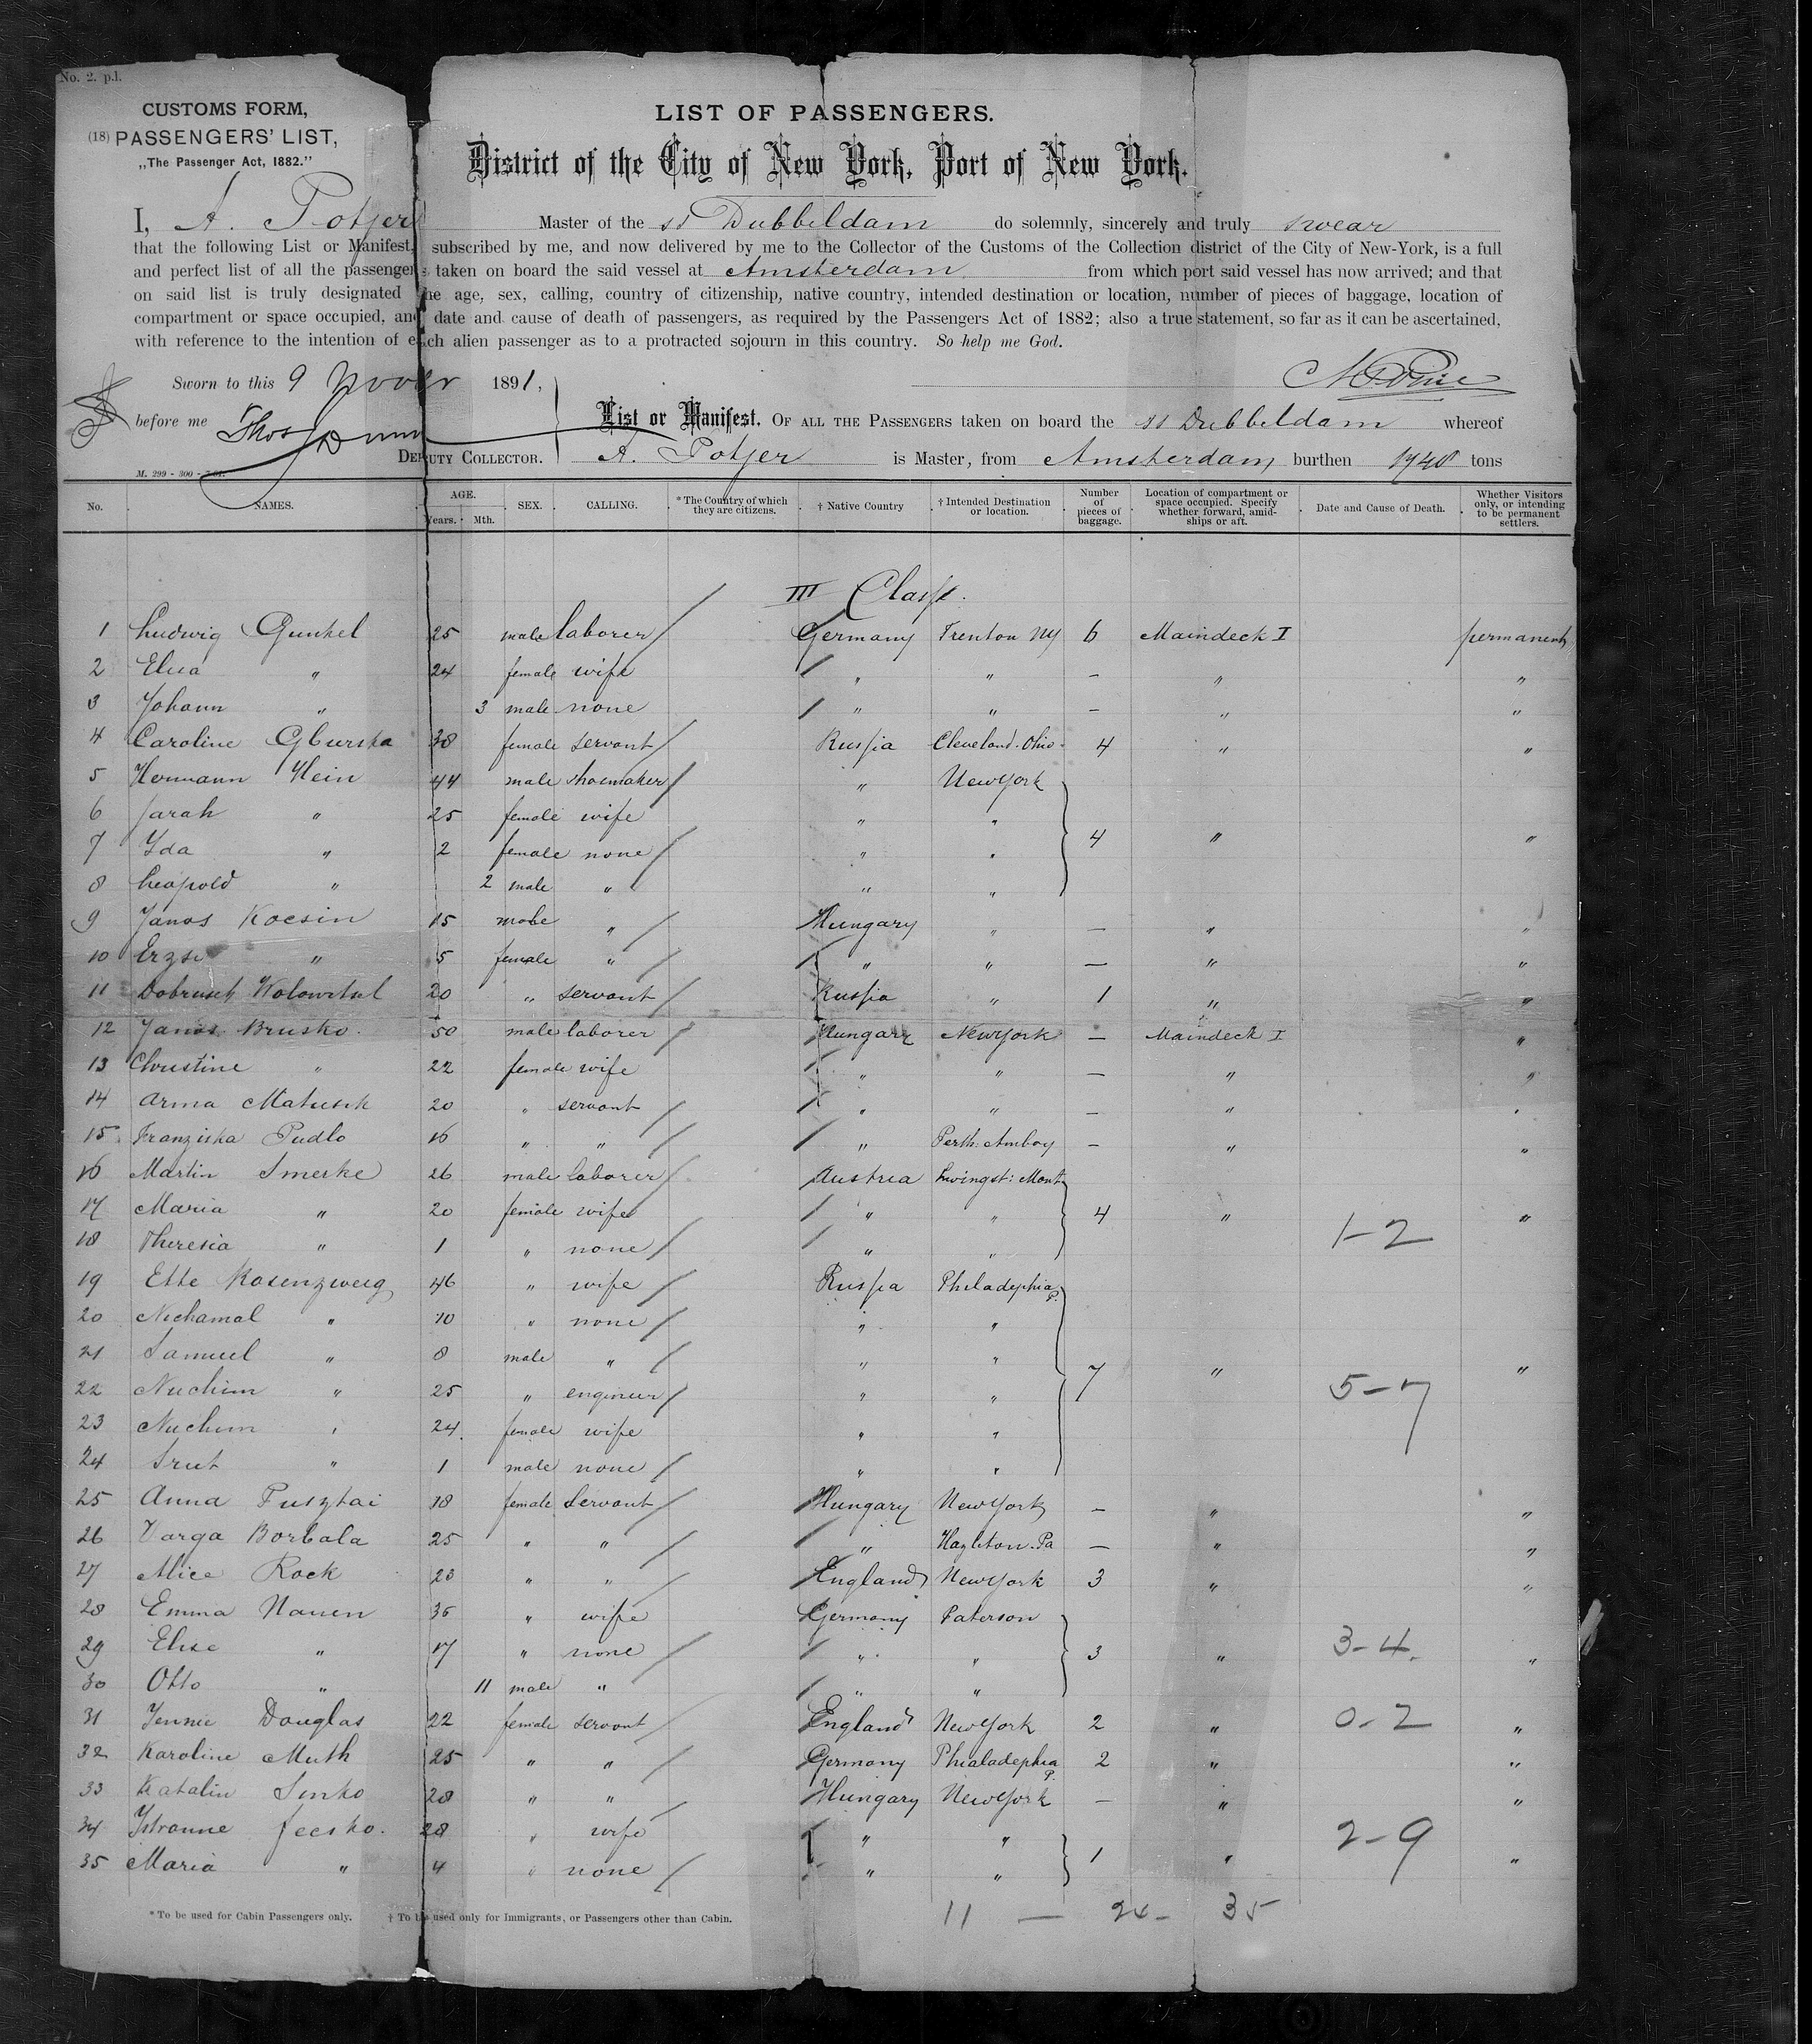 No. 2. p.l.
CUSTOMS FORM,
(18) PASSENGERS' LIST,
„The Passenger Act, 1882."
LIST OF PASSENGERS.
District of the City of New York, Port of New York.
I, A. Potjer Master of the ss Dubbeldam do solemnly, sincerely and truly swear
that the following List or Manifest, subscribed by me, and now delivered by me to the Collector of the Customs of the Collection district of the City of New-York, is a full
and perfect list of all the passengers taken on board the said vessel at Amsterdam from which port said vessel has now arrived; and that
on said list is truly designated the age, sex, calling, country of citizenship, native country, intended destination or location, number of pieces of baggage, location of
compartment or space occupied, and date and cause of death of passengers, as required by the Passengers Act of 1882; also a true statement, so far as it can be ascertained,
with reference to the intention of each alien passenger as to a protracted sojourn in this country. So help me God.
Sworn to this 9 Novbr 1891,
before me Thos Dunn
DEPUTY COLLECTOR.
M. 299 - 300 -
List or Manifest. OF ALL THE PASSENGERS taken on board the ss Dubbeldam whereof
A. Potjer is Master, from Amsterdam burthen 1948 tons
No. NAMES. AGE. Years. Mth. SEX. CALLING. * The Country of which they are citizens. † Native Country † Intended Destination or location. Number of pieces of baggage. Location of compartment or space occupied. Specify whether forward, amidships or aft. Date and Cause of Death. Whether Visitors only, or intending to be permanent settlers.
III Class.
1 Ludwig Gunkel 25 male laborer Germany Trenton NY 6 Maindeck I permanent
2 Elisa " 24 female wife " " — " "
3 Johann " 3 male none " " — " "
4 Caroline Gburska 38 female servant Russia Cleveland. Ohio. 4 " "
5 Hermann Hein 44 male shoemaker " New York
6 Sarah " 25 female wife " "
7 Ida " 2 female none " " 4 " "
8 Leopold " 2 male " " "
9 Janos Kocsin 15 male " Hungary " — " "
10 Erzse " 5 female " " " — " "
11 Dobrusch Wolowitsel 20 " servant Russia " 1 " "
12 Janos Brusko. 50 male laborer Hungary New York — Maindeck I "
13 Christine " 22 female wife " " — " "
14 Anna Matusek 20 " servant " " — " "
15 Franziska Pudlo 16 " " " Perth. Amboy — " "
16 Martin Smerke 26 male laborer Austria Livingst: Mont
17 Maria " 20 female wife " " 4 " "
18 Theresia " 1 " none " " 1-2
19 Ette Rosenzweig 46 " wife Russia Philadephia P.
20 Nechamal " 10 " none " "
21 Samuel " 8 male " " " 7 " "
22 Nuchim " 25 " engineur " " 5-7
23 Nuchim " 24. female wife " "
24 Srut " 1 male none " "
25 Anna Pusztai 18 female Servant Hungary New York — " "
26 Varga Borbala 25 " " " Hazleton. Pa — " "
27 Alice Rock 23 " " England New York 3 " "
28 Emma Nauen 36 " wife Germany Paterson
29 Elise " 17 " none " " 3 " 3-4. "
30 Otto " 11 male " " "
31 Jennie Douglas 22 female servant England New York 2 " 0-2 "
32 Karoline Muth 25 " " Germany Phialadephia P. 2 " "
33 Katalin Sinko 28 " " Hungary New York — " "
34 Istvanne Jecsko. 28 " wife " " 2-9
35 Maria " 4 " none " " 1 " "
* To be used for Cabin Passengers only. † To be used only for Immigrants, or Passengers other than Cabin.
11 — 24 - 35